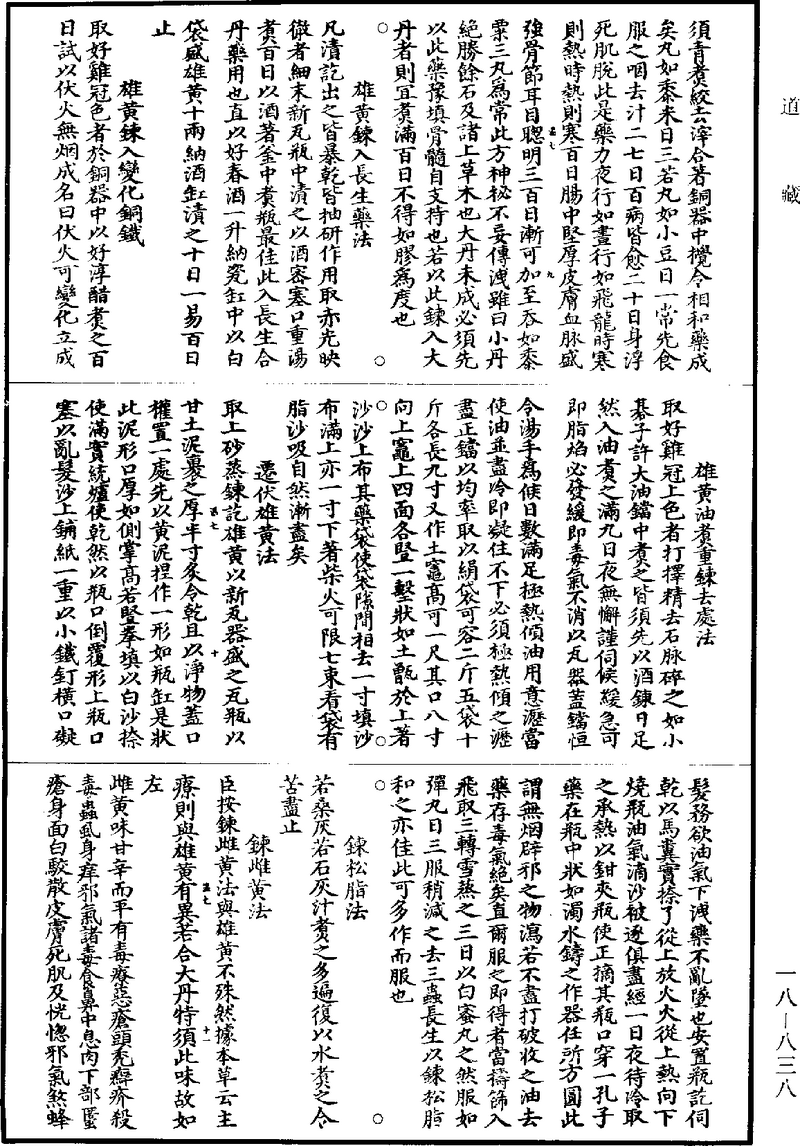 道藏
須青煑絞去滓合著銅器中攪令相和藥成
矣丸如黍米日三若丸如小豆日一常先食
服之咽去汁二七日百病皆愈二十日身浮
死肌脫此是藥力夜行如晝行如飛龍時寒
則熱時熱則寒百日腸中堅厚皮膚血脉盛
強骨節耳目聰明三百日漸可加至吞如黍
粟三丸爲常此方神祕不妄傳洩雖曰小丹
絶勝餘石及諸上草木也大丹未成必須先
以此藥豫填骨髓自支持也若以此鍊入大
丹者則宜煑滿百日不得如膠爲度也
雄黃鍊入長生藥法
凡漬訖出之皆暴乾皆抽研作用取赤光映
徹者細末新瓦瓶中漬之以酒密塞口重湯
煑百日以酒著釜中煑瓶最佳此入長生合
丹藥用也直以好春酒一升納瓷缸中以白
袋盛雄黃十兩納酒缸漬之十日一易百日
止
雄黃鍊入變化銅鐵
取好雞冠色者於銅器中以好淳醋煑之百
日試以伏火無烟成名曰伏火可變化立成
雄黃油煑重鍊去處法
取好雞冠上色者打擇精去石脉碎之如小
碁子許大油鐺中煑之皆須先以酒鍊日足
然入油煑之滿九日夜無懈謹伺候緩急可
即脂焰必發緩即毒氣不消以瓦器蓋鐺恒
令湯手爲候日數滿足極熱傾油用意瀝當
使油並盡冷即凝住不下必須極熱傾之瀝
盡正鐺以均率取以絹袋可容二斤五袋十
斤各長九寸又作土竈高可一尺其口八寸
向上竈上四面各竪一墼狀如土甑於上著
沙沙上布其藥袋使袋隙間相去一寸填沙
布滿上亦一寸下著柴火可限七束看袋有
脂沙吸自然漸盡矣
遷伏雄黃法
取上砂蒸鍊訖雄黃以新瓦器盛之瓦瓶以
甘土泥裹之厚半寸炙令乾且以淨物蓋口
權置一處先以黃泥揑作一形如瓶缸是狀
此泥形口厚如側掌高若竪拳填以白沙捺
使滿實統爐使乾然以瓶口倒覆形上瓶口
塞以亂髮沙上鋪紙一重以小鐵釘橫口礙
髮務欲油氣下洩藥不亂墜也安置瓶訖伺
乾以馬糞實捺了從上放火火從上熱向下
燒瓶油氣滴沙被逐俱盡經一日夜待冷取
之承熱以鉗夾瓶使正摘其瓶口穿一孔子
藥在瓶中狀如濁水鑄之作器任所方圓此
謂無烟辟邪之物瀉若不盡打破收之油去
藥存毒氣絶矣直爾服之即得者當擣篩入
飛取三轉雪蒸之三日以白蜜丸之然服如
彈丸日三服稍減之去三蟲長生以鍊松脂
和之亦佳此可多作而服也
鍊松脂法
若桑灰若石灰汁煑之多遍復以水煑之令
苦盡止
鍊雌黃法
臣按鍊雌黃法與雄黃不殊然據本草云主
療則與雄黃有異若合大丹特須此味故如
左
雌黃味甘辛而平有毒療惡瘡頭禿痹疥殺
毒蟲虱身痒邪氣諸毒食鼻中息肉下部䘌
瘡身面白駮散皮膚死肌及恍惚邪氣煞蜂
一八—八三八